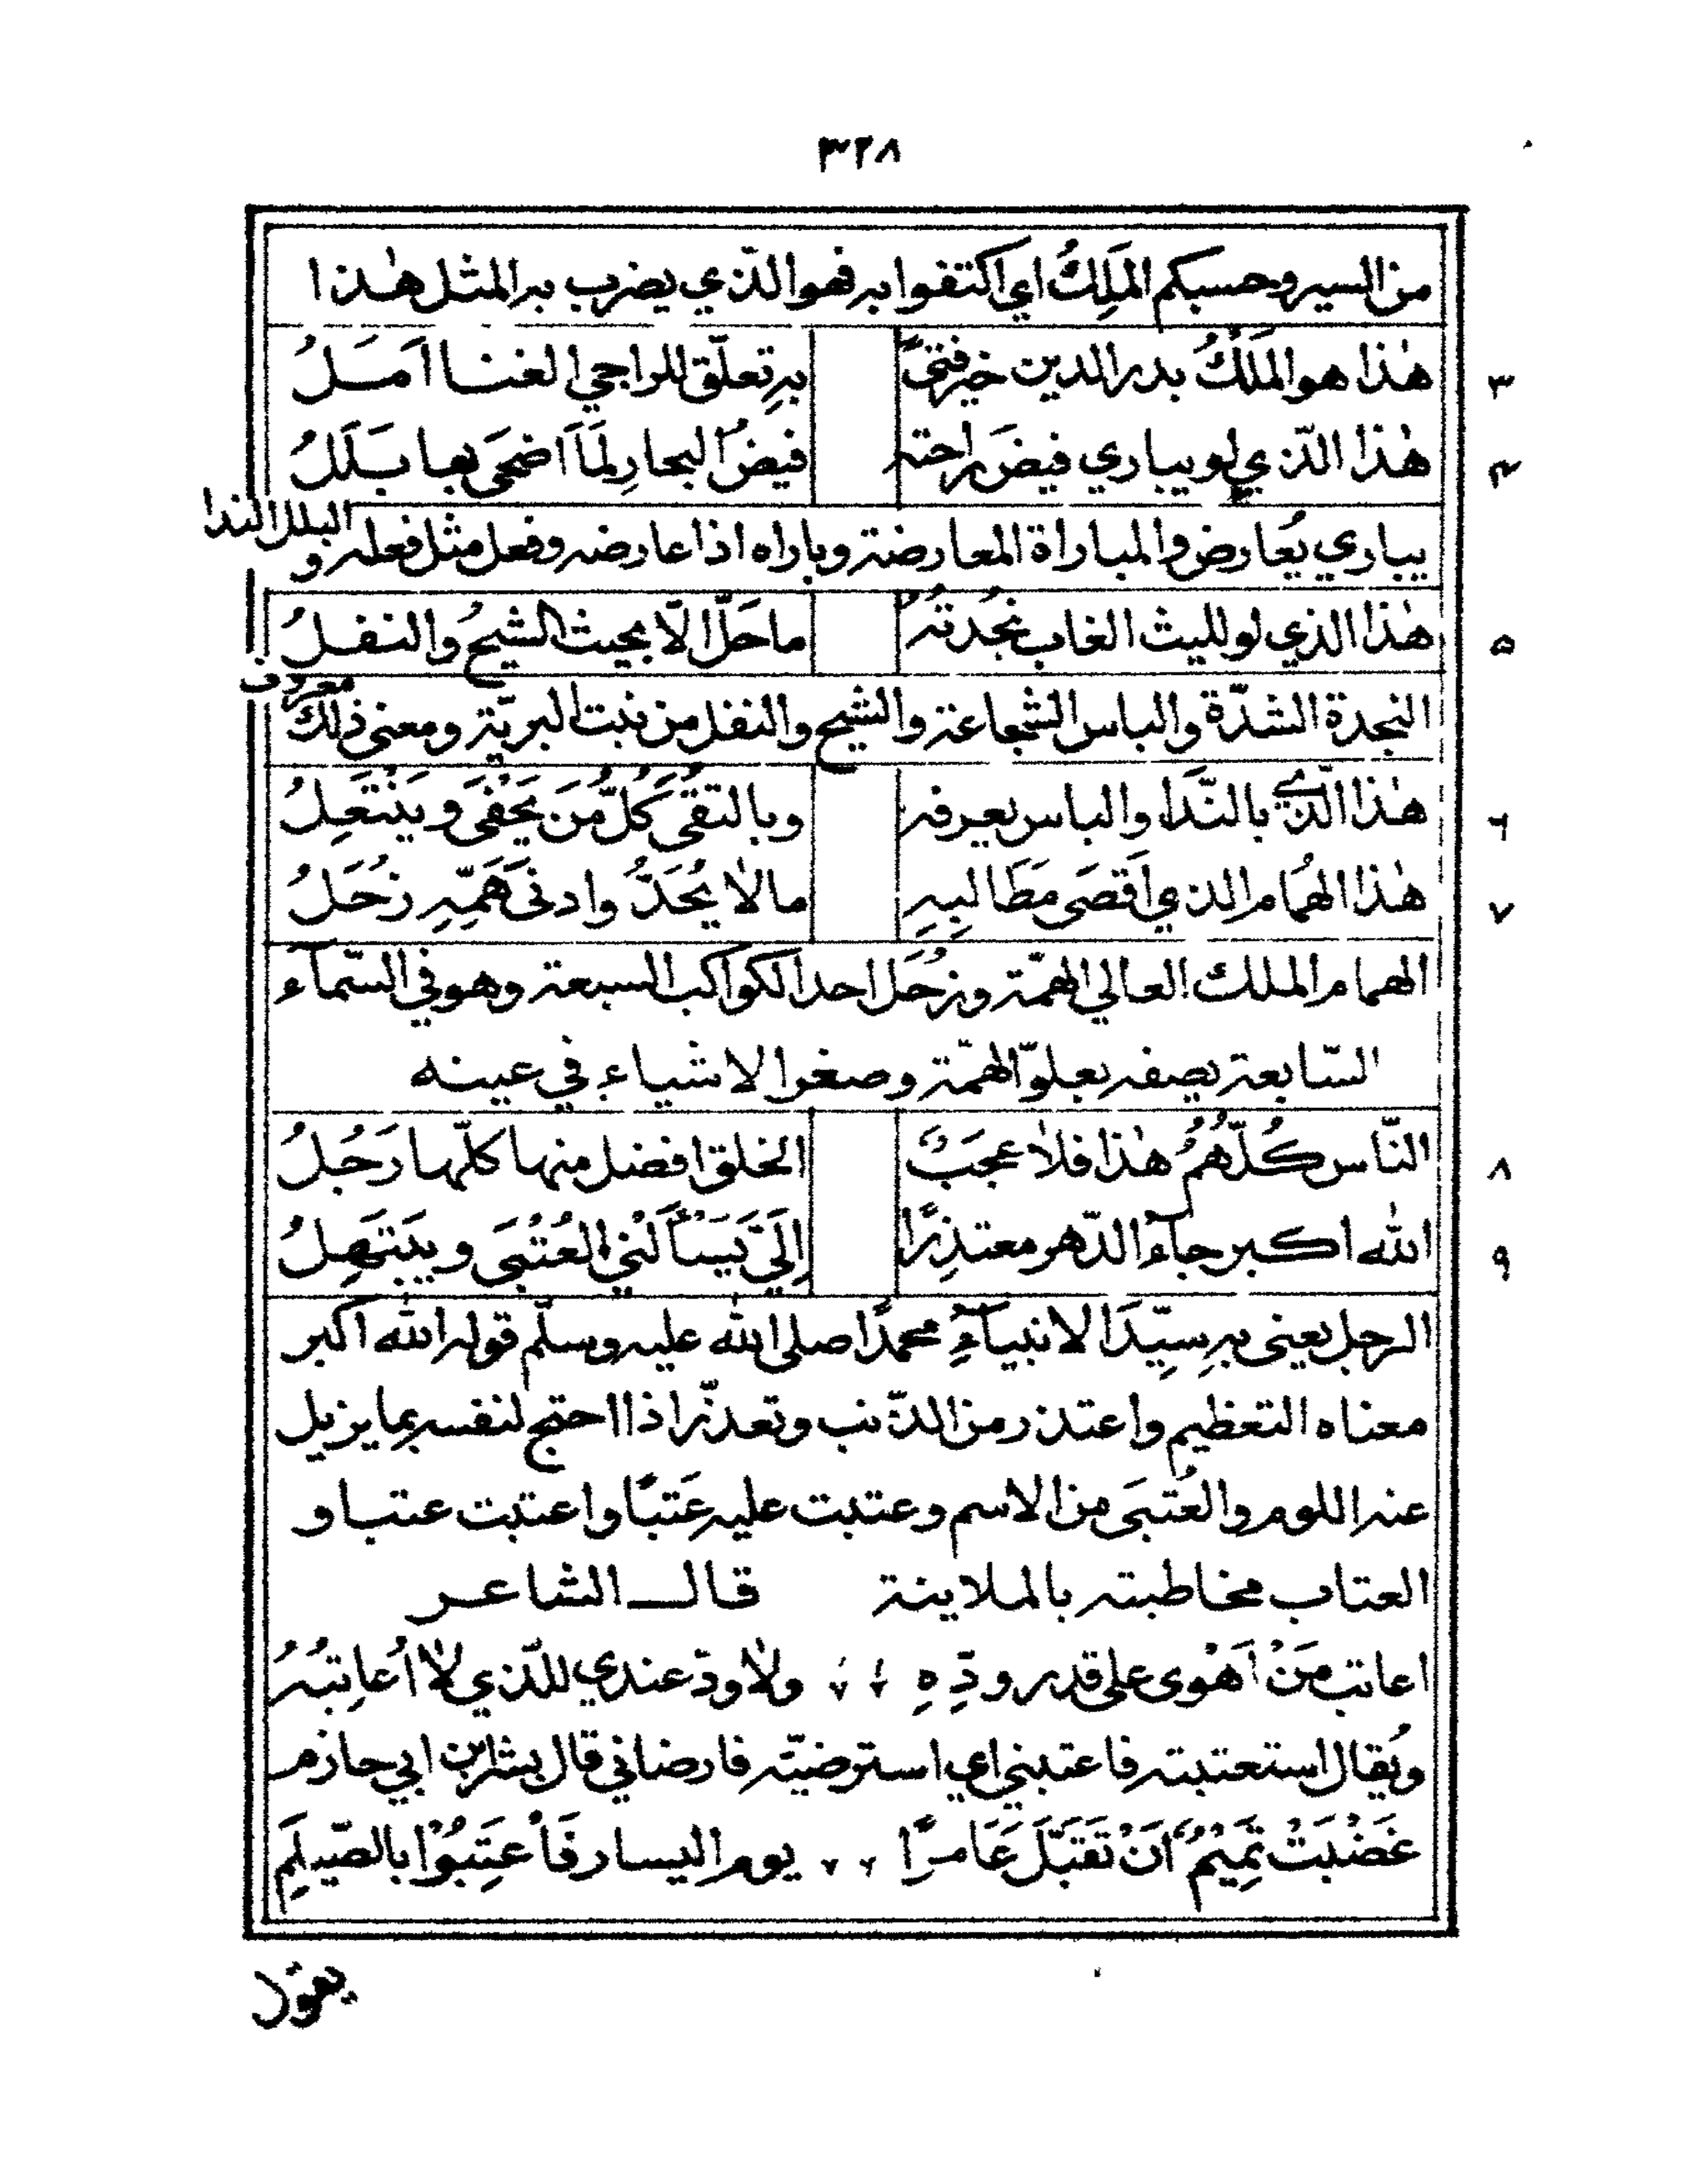 ٣٢٨
من السير وحسبكم المَلِكُ اي اكتفوا به فهو الّذي يضرب به المثل هٰذا
٣ هٰذا هو المَلْكُ بدر الدين خير فتىً به تعلّق للراجي الغنا اَمَلُ
٤ هٰذا الّذي لو يباري فيضَ راحته فيضُ البحارِ لمَا اَضحَى بها بَلَلُ
يباري يُعارض والمباراة المعارضة وباراه اذا عارضه وفعل مثل فعله و البلل الندا
٥ هٰذا الذي لو لليث الغاب نجُدتُه ما حَلَّ الّا بحيث الشيحُ والنفلُ
النجدة الشدّة والباس الشجاعة والشيح والنفل من نبت البريّة ومعنى ذلك معروف
٦ هٰذا الّذي بالنّدَا والباس يعرفه وبالتقَى كلُّ مَن يَحْفَى ويَنْتَعِلُ
٧ هٰذا الهُمَام الذي اَقصَى مَطَالبِهِ مالا يُحَدُّ وادنىَ هَمِّهِ زُحَلُ
الهمام الملك العالي الهمّة وزُحَل احد الكواكب السبعة وهو في السّمآء
السّابعة يصفه بعلوّ الهمّة وصغر الاشياء في عينه
٨ النّاس كُلّهُمُ هٰذا فلا عجَبٌ الخلق افضل منها كلّها رَجُلُ
٩ الله اكبر جآءَ الدّهر معتذِرًا اِلَيَّ يَسْأَلُني العُتْبَى ويبَتَهِلُ
الرجل يعني به سيِّدَ الانبيآءِ محمدًا صلى الله عليه وسلّم قوله الله اكبر
معناه التعظيم واعتذر من الذّنب وتعذّر اذا احتج لنفسه بما يزيل
عنه اللوم والعُتبَى من الاسم وعتبت عليه عَتبًا واعتبت عتبا و
العتاب مخاطبته بالملاينة قال الشاعر
اعاتب مَنْ اَهْوى على قدر ودِّهِ ولا ودّ عندي للّذي لا اُعاتِبُهُ
ويُقال استعتبته فاعتبني اي استرضيّته فارضاني قال بشر ابن ابي حازم
غَضْبَتْ تمَيْمٌ اَنْ تَقَبَّلَ عَامرًا يوم اليسار فَأعتِبُوْا بالصّيلَمِ
يقول